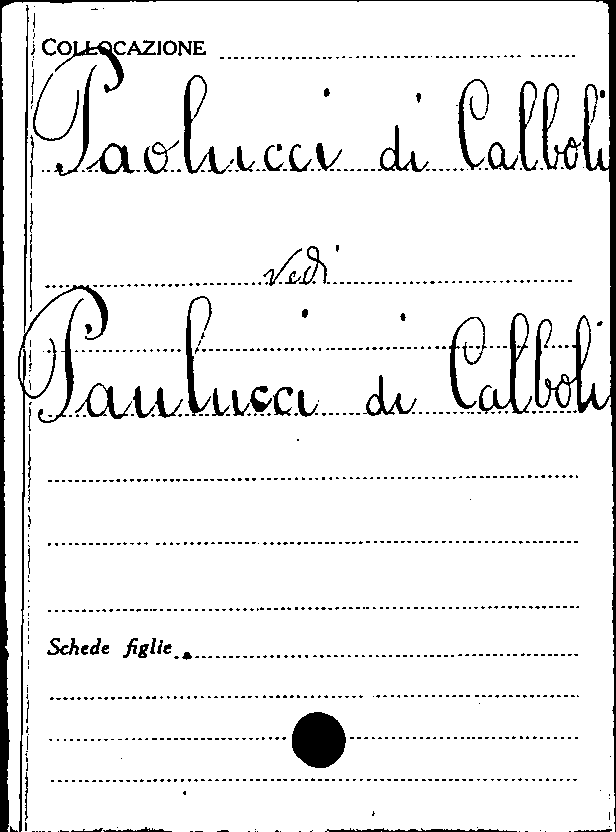 COLLOCAZIONE
Paolucci di Calboli
vedi
Paulucci di Calboli
Schede figlie